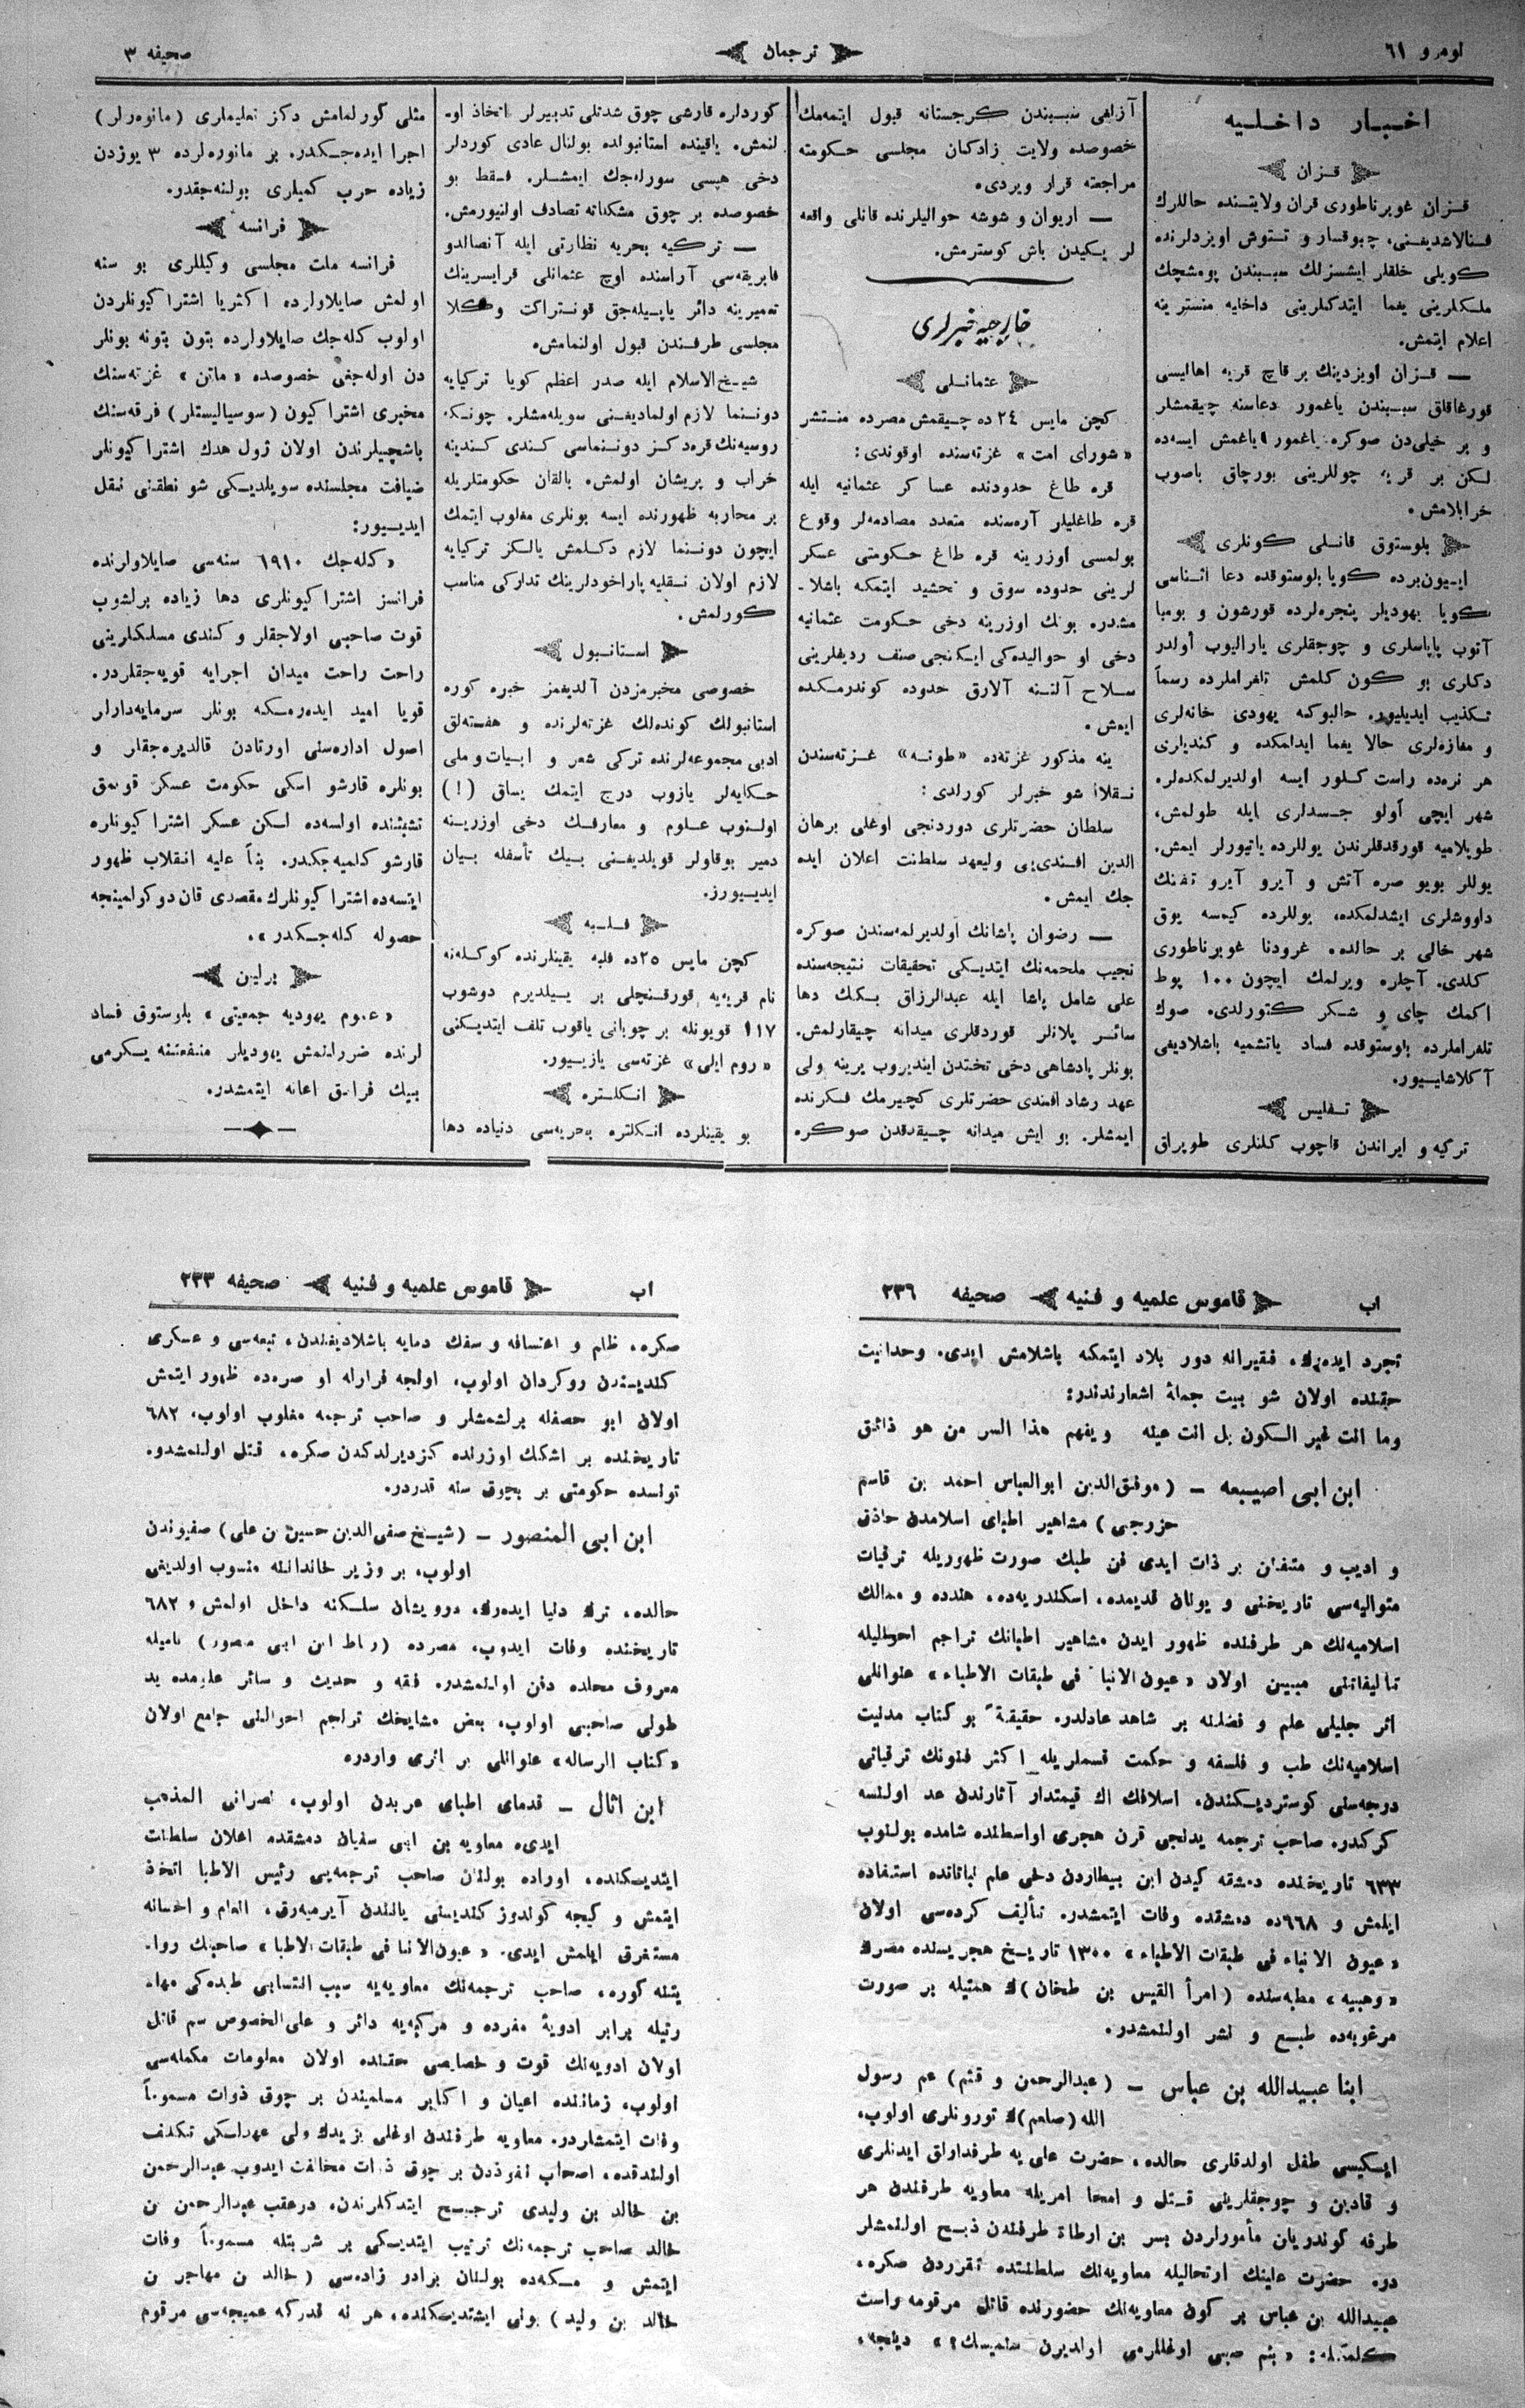 نومرو ٦١
ترجمان
صحیفه ٣
اخبار داخلیه
قزان
قزان غوبرناطوری قزان ولایتنده حاللرك
فنالاشدیغنی، چبوقسار و تستوش اویزدلرنده
كویلی خلقلر ایشسزلك سببندن پومشچك
ملكلرینی یغما ایتدكلرینی داخلیه منسترینه
اعلام ایتمش.
— قزان اویزدینك بر قاچ قریه اهالیسی
قورغاقلق سببندن یاغمور دعاسنه چیقمشلر
و بر خیلی‌دن صوكره یاغمور یاغمش ایسه‌ده
لكن بر قریه چوللرینی بورچاق باصوب
خرابلامش.
بلوستوق قانلی كونلری
ایيون‌برده كویا بلوستوقده دعا اثناسی
كویا یهودیلر پنجره‌لرده قورشون و بومبا
آتوب پاپاسلری و چوجقلری یارالیوب أولدر
دكلری بو كون كلمش تلغراملرده رسماً
تكذیب ایدیلیور. حالبوكه یهودی خانه‌لری
و مغازه‌لری حالا یغما ایدلمكده و كندیلری
هر نره‌ده راست كلور ایسه اولدیرلمكده‌لر.
شهر ایچی أولو جسدلری ایله طولمش،
طوپلامیه قورقدقلرندن یوللرده یاتیورلر ایمش.
یوللر بویو صره آتش و آیرو آیرو تفنك
داووشلری ایشدلمكده، یوللرده كیمسه یوق
شهر خالی بر حالده. غرودنا غوبرناطوری
كلدی. آچلره ویرلمك ایچون ١٠٠ پوط
اكمك چای و شكر كتورلدی. صوك
تلغراملرده بلوستوقده فساد یاتشمیه باشلادیغی
آكلاشلیيور.
تفلیس
تركیه و ایراندن قاچوب كلنلری طوپراق
آزلغی سببندن كرجستانه قبول ایتمه‌مك
خصوصده ولایت زادكان مجلسی حكومته
مراجعته قرار ویردی.
— اریوان و شوشه حوالیلرنده قانلی واقعه
لر یكیدن باش كوسترمش.
خارجیه خبرلری
عثمانلی
كچن مایس ٢٤ ده چیقمش مصرده منتشر
«شورای امت» غزته‌سنده اوقوندی:
قره طاغ حدودنده عساكر عثمانیه ایله
قره طاغلیلر آره‌سنده متعدد مصادمه‌لر وقوع
بولمسی اوزرینه قره طاغ حكومتی عسكر
لرینی حدوده سوق و تحشید ایتمكه باشلا-
مشدر. بونك اوزرینه دخی حكومت عثمانیه
دخی او حوالیده‌كی ایكنجی صنف ردیفلرینی
سلاح آلتنه آلارق حدوده كوندرمكده
ایمش.
ینه مذكور غزته‌ده «طونه» غزته‌سندن
نقلاً شو خبرلر كورلدی:
سلطان حضرتلری دوردنجی اوغلی برهان
الدین افندی‌یی ولیعهد سلطنت اعلان ایده
جك ایمش.
— رضوان پاشانك اولدیرلمه‌سندن صوكره
نجیب ملحمه‌نك ایتدیكی تحقیقات نتیجه‌سنده
علی شامل پاشا ایله عبدالرزاق بكك دها
سائر پلانلر قوردقلری میدانه چیقارلمش.
بونلر پادشاهی دخی تختدن ایندیروب یرینه ولی
عهد رشاد افندی حضرتلری كچیرمك فكرنده
ایمشلر. بو ایش میدانه چیقدقدن صوكره
كوردلره قارشی چوق شدتلی تدبیرلر اتخاذ او-
لنمش. یاقینده استانبولده بولنان عادی كوردلر
دخی هپسی سوره‌جك ایمشلر. فقط بو
خصوصده بر چوق مشكلاته تصادف اولنیورمش.
— تركیه بحریه نظارتی ایله آنصالدو
فابریقه‌سی آراسنده اوچ عثمانلی قرایسرینك
تعمیرینه دائر یاپیله‌جق قونتراكت وكلا
مجلسی طرفندن قبول اولنمامش.
شیخ‌الاسلام ایله صدر اعظم كویا تركیایه
دوننما لازم اولمادیغنی سویله‌مشلر. چونكه
روسیه‌نك قره‌دكز دوننماسی كندی كندینه
خراب و پریشان اولمش. بالقان حكومتلریله
بر محاربه ظهورنده ایسه بونلری مغلوب ایتمك
ایچون دوننما لازم دكلمش یالكز تركیایه
لازم اولان نقلیه پاراخودلرینك تداركی مناسب
كورلمش.
استانبول
خصوصی مخبرمزدن آلدیغمز خبره كوره
استانبولك كونده‌لك غزته‌لرنده و هفته‌لق
ادبی مجموعه‌لرنده تركی شعر و ابیات و ملی
حكایه‌لر یازوب درج ایتمك یساق (!)
اولنوب علوم و معارفك دخی اوزرینه
دمیر بوقاولر قویلدیغنی بیك تأسفله بیان
ایدیيورز.
فلبه
كچن مایس ٢٥ده فلبه یقینلرنده كوكله‌نه
نام قریه‌یه قورقنچلی بر ییلدیرم دوشوب
١١٧ قویونله بر چوبانی یاقوب تلف ایتدیكنی
«روم ایلی» غزته‌سی یازیيور.
انكلتره
بو یقینلرده انكلتره بحریه‌سی دنیاده دها
مثلی كورلمامش دكز تعلیملری (مانوره‌لر)
اجرا ایده‌جكدر. بو مانوره‌لرده ٣ یوزدن
زیاده حرب كمیلری بولنه‌جقدر.
فرانسه
فرانسه ملت مجلسی وكیللری بو سنه
اولمش صایلاولرده اكثریا اشتراكیونلردن
اولوب كله‌جك صایلاولرده بتون بتونه بونلر
دن اوله‌جغی خصوصده «ماتن» غزته‌سنك
مخبری اشتراكیون (سوسیالیستلر) فرقه‌سنك
باشچیلرندن اولان ژول هدك اشتراكیونلر
ضیافت مجلسنده سویلدیكی شو نطقنی نقل
ایدیيور:
«كله‌جك ١٩١٠ سنه‌سی صایلاولرنده
فرانسز اشتراكیونلری دها زیاده برلشوب
قوت صاحبی اولاجقلر و كندی مسلكلرینی
راحت راحت میدان اجرایه قویه‌جقلردر.
قویا امید ایده‌رمكه بونلر سرمایه‌دارلر
اصول اداره‌سنی اورتادن قالدیره‌جقلر و
بونلره قارشو اسكی حكومت عسكر قومق
تشبثنده اولسه‌ده لكن عسكر اشتراكیونلره
قارشو كلمیه‌جكدر. بناً علیه انقلاب ظهور
ایتسه‌ده اشتراكیونلرك مقصدی قان دوكولمینجه
حصوله كله‌جكدر».
برلین
«عموم یهودیه جمعیتی» بلوستوق فساد
لرنده ضررلنمش یهودیلر منفعتنه یكرمی
بیك فرانق اعانه ایتمشدر.
اب
قاموس علمیه و فنیه
صحیفه ٢٣٦
تجرد ایده‌رك، فقیرانه دور بلاد ایتمكه باشلامش ایدی. وحدانیت
حقنده اولان شو بیت جملهٔ اشعارندندر:
وما انت غیر الكون بل انت عینه ویفهم هذا السر من هو ذائق
ابن ابی اصیبعه — (موفق‌الدین ابوالعباس احمد بن قاسم
خزرجی) مشاهیر اطبای اسلامدن حاذق
و ادیب و متفنن بر ذات ایدی فن طبك صورت ظهوریله ترقیات
متوالیه‌سی تاریخنی و یونان قدیمده، اسكندریه‌ده، هندده و ممالك
اسلامیه‌نك هر طرفنده ظهور ایدن مشاهیر اطبانك تراجم احوالیله
تألیفاتنی مبین اولان «عیون الانبا فی طبقات الاطباء» عنوانلی
اثر جلیلی علم و فضلنه بر شاهد عادلدر. حقیقةً بو كتاب مدنیت
اسلامیه‌نك طب و فلسفه و حكمت قسملریله اكثر فنونك ترقیاتی
درجه‌سنی كوستردیكندن، اسلافك اك قیمتدار آثارندن عد اولنسه
كركدر. صاحب ترجمه یدنجی قرن هجری اواسطنده شامده بولنوب
٦٣٣ تاریخنده دمشقه كیدن ابن بیطاردن دخی علم نباتانده استفاده
ایلمش و ٦٦٨ده دمشقده وفات ایتمشدر. تألیف كرده‌سی اولان
«عیون الانباء فی طبقات الاطباء» ١٣٠٠ تاریخ هجریسنده مصرك
«وهبیه» مطبعه‌سنده (امرأ القیس بن طحان)ك همتیله بر صورت
مرغوبه‌ده طبع و نشر اولنمشدر.
ابنا عبیدالله بن عباس — (عبدالرحمن و قثم) عم رسول
الله (صلعم)ك تورونلری اولوب،
ایكیسی طفل اولدقلری حالده، حضرت علی یه طرفداراق ایدنلری
و قادین و چوجقلرینی قتل و امحا امریله معاویه طرفندن هر
طرفه كوندریلن مأمورلردن بسر بن ارطاة طرفندن ذبح اولنمشلر
در. حضرت علینك ارتحالیله معاویه‌نك سلطنتده تقرردن صكره،
عبیدالله بن عباس بر كون معاویه‌نك حضورنده قاتل مرقومه راست
كلمكله: «بنم صبی اوغللرمی اولدیرن سنمیسك؟» دینجه،
اب
قاموس علمیه و فنیه
صحیفه ٢٣٣
صكره، ظلم و اعتسافه و سفك دمایه باشلادیغندن، تبعه‌سی و عسكری
كندیسندن روكردان اولوب، اولجه فرارله او صره‌ده ظهور ایتمش
اولان ابو حصفله برلشمشلر و صاحب ترجمه مغلوب اولوب، ٦٨٢
تاریخنده بر اشكك اوزرنده كزدیرلدكدن صكره، قتل اولنمشدر.
تونسده حكومتی بر بچوق سنه قدردر.
ابن ابی المنصور — (شیخ صفی‌الدین حسین بن علی) صفیوندن
اولوب، بر وزیر خاندانه منسوب اولدیغی
حالده، ترك دنیا ایده‌رك، درویشان سلكنه داخل اولمش و ٦٨٢
تاریخنده وفات ایدوب، مصرده (رباط ابن ابی منصور) نامیله
معروف محلده دفن اولنمشدر. فقه و حدیث و سائر علومده ید
طولی صاحبی اولوب، بعض مشایخك تراجم احوالنی جامع اولان
«كتاب الرساله» عنوانلی بر اثری واردر.
ابن اثال — قدمای اطبای عربدن اولوب، نصرانی المذهب
ایدی. معاویه بن ابی سفیان دمشقده اعلان سلطنت
ایتدیكنده، اوراده بولنان صاحب ترجمه‌یی رئیس الاطبا اتخاذ
ایتمش و كیجه كوندوز كندیسنی یانندن آیرمیه‌رق، انعام و احسانه
مستغرق ایلمش ایدی. «عیون‌الانبا فی طبقات الاطبا» صاحبنك روا-
یتنه كوره، صاحب ترجمه‌نك معاویه‌یه سبب انتسابی طبده‌كی مها-
رتیله برابر ادویهٔ مفرده و مركبه‌یه دائر و علی‌الخصوص سم قاتل
اولان ادویه‌نك قوت و خصایصی حقنده اولان معلومات مكمله‌سی
اولوب، زماننده اعیان و اكابر مسلمیندن بر چوق ذوات مسموماً
وفات ایتمشلردر. معاویه طرفندن اوغلی یزیدك ولی عهدلكی تكلیف
اولندقده، اصحاب نفوذدن بر چوق ذوات مخالفت ایدوب عبدالرحمن
بن خالد بن ولیدی ترجیح ایتدكلرندن، درعقب عبدالرحمن بن
خالد صاحب ترجمه‌نك ترتیب ایتدیكی بر شربتله مسموماً وفات
ایتمش و مكه‌ده بولنان برادر زاده‌سی (خالد بن مهاجر بن
خالد بن ولید) بونی ایشتدیكنده، هر نه قدركه عمیجه‌سی مرقوم